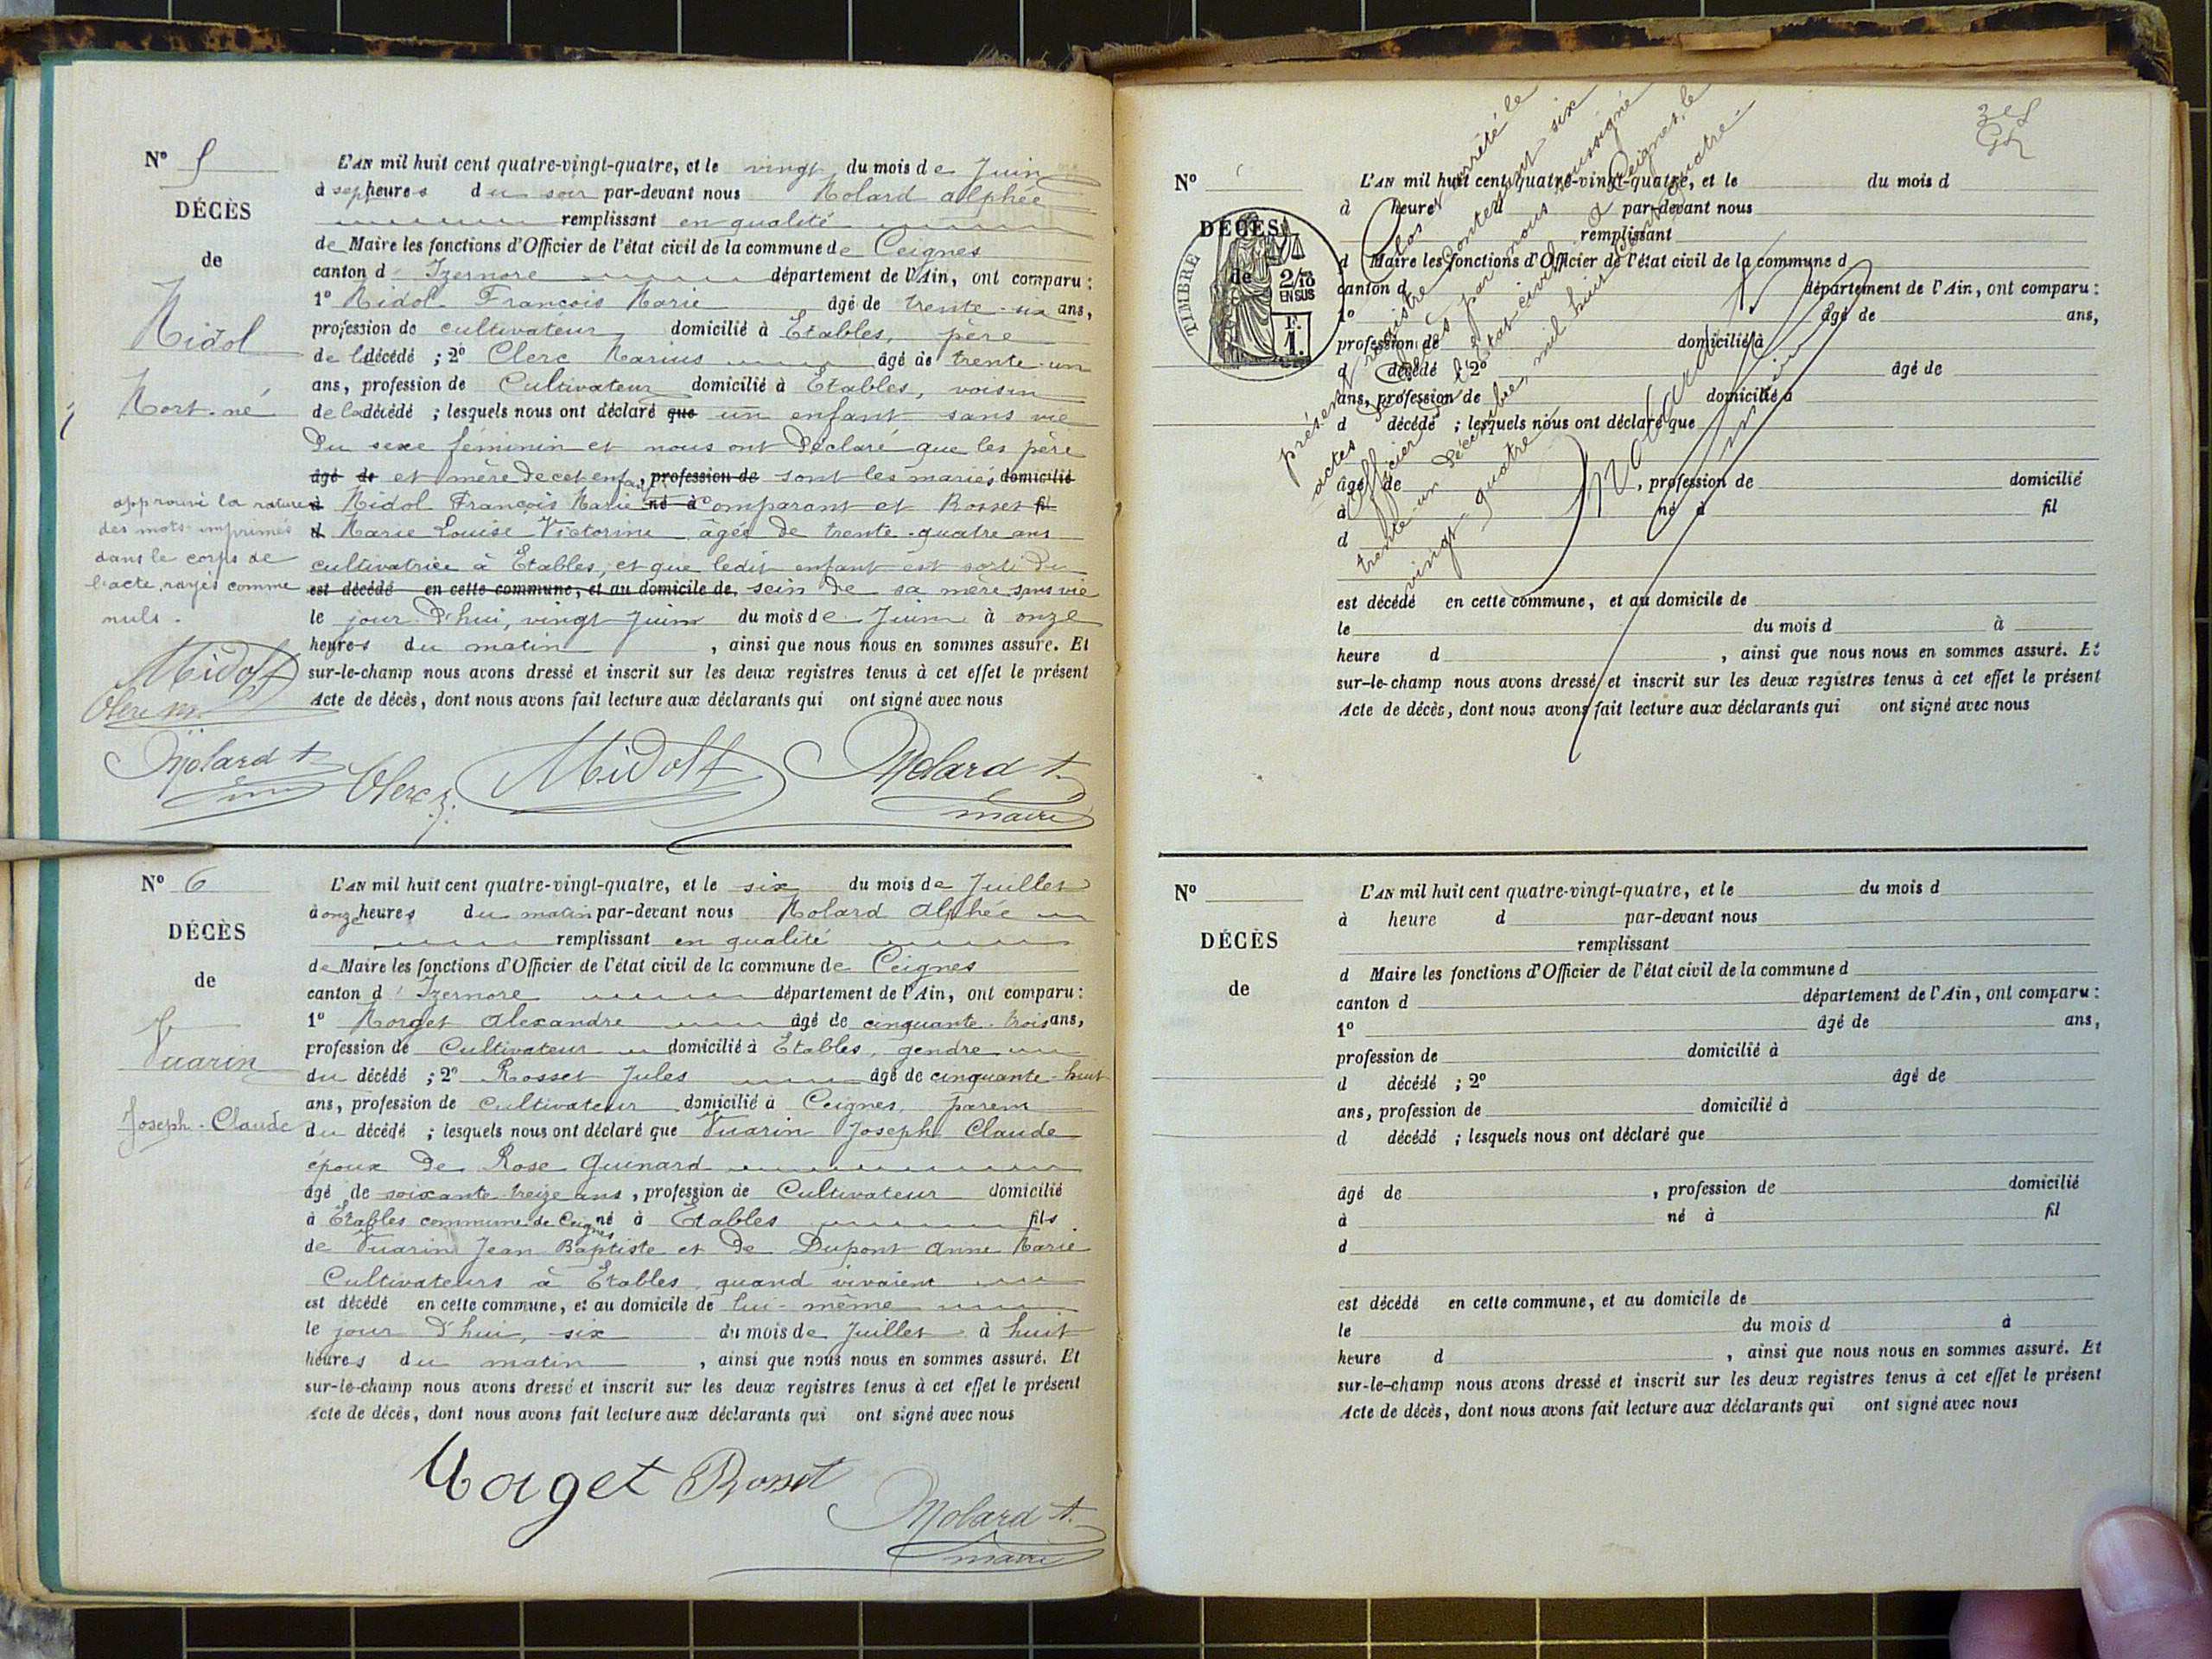 Nº 5
DÉCÈS
de
Midol
Mort-né
L'AN mil huit cent quatre-vingt-quatre, et le vingt du mois de Juin
à sept heures du soir par-devant nous Molard Alphée
remplissant en qualité
de Maire les fonctions d'Officier de l'état civil de la commune de Ceignes
canton d'Izernore département de l'Ain, ont comparu :
1º Midol François Marie âgé de trente-un ans,
profession de cultivateur domicilié à Etables, père
de la décédé ; 2º Clerc Marius âgé de trente-un
ans, profession de Cultivateur domicilié à Etables, voisin
de la décédé ; lesquels nous ont déclaré que un enfant sans vie
Du sexe féminin et nous ont Déclaré que les père
âgé de et mère De cet enfant, profession de sont les mariés domicilié
à Midol François Marie né à Comparant et Rosset fil
d Marie Louise Victorine âgée de trente-quatre ans
cultivatrice à Etables, et que ledit enfant est sorti Du
est décédé en cette commune, et au domicile de sein De sa mère sans vie
le jour D'hui, vingt Juin du mois de Juin à onze
heures du matin, ainsi que nous nous en sommes assuré. Et
sur-le-champ nous avons dressé et inscrit sur les deux registres tenus à cet effet le présent
Acte de décès, dont nous avons fait lecture aux déclarants qui ont signé avec nous
approuvé la rature
des mots imprimés
dans le corps de
l'acte, rayés comme
nuls.
Midol f
Clerc m.
Molard A.
Clerc
Midol f
Molard A.
maire
Nº 6
DÉCÈS
de
Vuarin
Joseph-Claude
L'AN mil huit cent quatre-vingt-quatre, et le six du mois de Juillet
à onze heures du matin par-devant nous Molard Alphée
remplissant en qualité
de Maire les fonctions d'Officier de l'état civil de la commune de Ceignes
canton d'Izernore département de l'Ain, ont comparu :
1º Morget Alexandre âgé de cinquante-trois ans,
profession de Cultivateur domicilié à Etables, gendre
du décédé ; 2º Rosset Jules âgé de cinquante-huit
ans, profession de Cultivateur domicilié à Ceignes, parent
du décédé ; lesquels nous ont déclaré que Vuarin Joseph Claude
époux De Rose Guinard
âgé de soixante-treize ans, profession de Cultivateur domicilié
à Etables commune de Ceignes né à Etables fils
de Vuarin Jean Baptiste et De Dupont Anne Marie
Cultivateurs à Etables, quand vivaient
est décédé en cette commune, et au domicile de lui-même
le jour D'hui, six du mois de Juillet à huit
heures du matin, ainsi que nous nous en sommes assuré. Et
sur-le-champ nous avons dressé et inscrit sur les deux registres tenus à cet effet le présent
Acte de décès, dont nous avons fait lecture aux déclarants qui ont signé avec nous
Rosset
Molard A.
maire
Nº
DÉCÈS
de
TIMBRE
2/10
EN SUS
F.
1.
L'AN mil huit cent quatre-vingt-quatre, et le du mois d
à heure d par-devant nous
remplissant
d Maire les fonctions d'Officier de l'état civil de la commune d
canton d département de l'Ain, ont comparu :
1º âgé de ans,
profession de domicilié à
d décédé ; 2º âgé de
ans, profession de domicilié à
d décédé ; lesquels nous ont déclaré que
âgé de , profession de domicilié
à né à fil
d
est décédé en cette commune, et au domicile de
le du mois d à
heure d , ainsi que nous nous en sommes assuré. Et
sur-le-champ nous avons dressé et inscrit sur les deux registres tenus à cet effet le présent
Acte de décès, dont nous avons fait lecture aux déclarants qui ont signé avec nous
Clos et arrêté le
présent registre contenant six
actes de Décès par nous soussigné
Officier de l'état civil à Ceignes, le
trente-un Décembre, mil huit cent
vingt-quatre
Molard A.
Nº
DÉCÈS
de
L'AN mil huit cent quatre-vingt-quatre, et le du mois d
à heure d par-devant nous
remplissant
d Maire les fonctions d'Officier de l'état civil de la commune d
canton d département de l'Ain, ont comparu :
1º âgé de ans,
profession de domicilié à
d décédé ; 2º âgé de
ans, profession de domicilié à
d décédé ; lesquels nous ont déclaré que
âgé de , profession de domicilié
à né à fil
d
est décédé en cette commune, et au domicile de
le du mois d à
heure d , ainsi que nous nous en sommes assuré. Et
sur-le-champ nous avons dressé et inscrit sur les deux registres tenus à cet effet le présent
Acte de décès, dont nous avons fait lecture aux déclarants qui ont signé avec nous